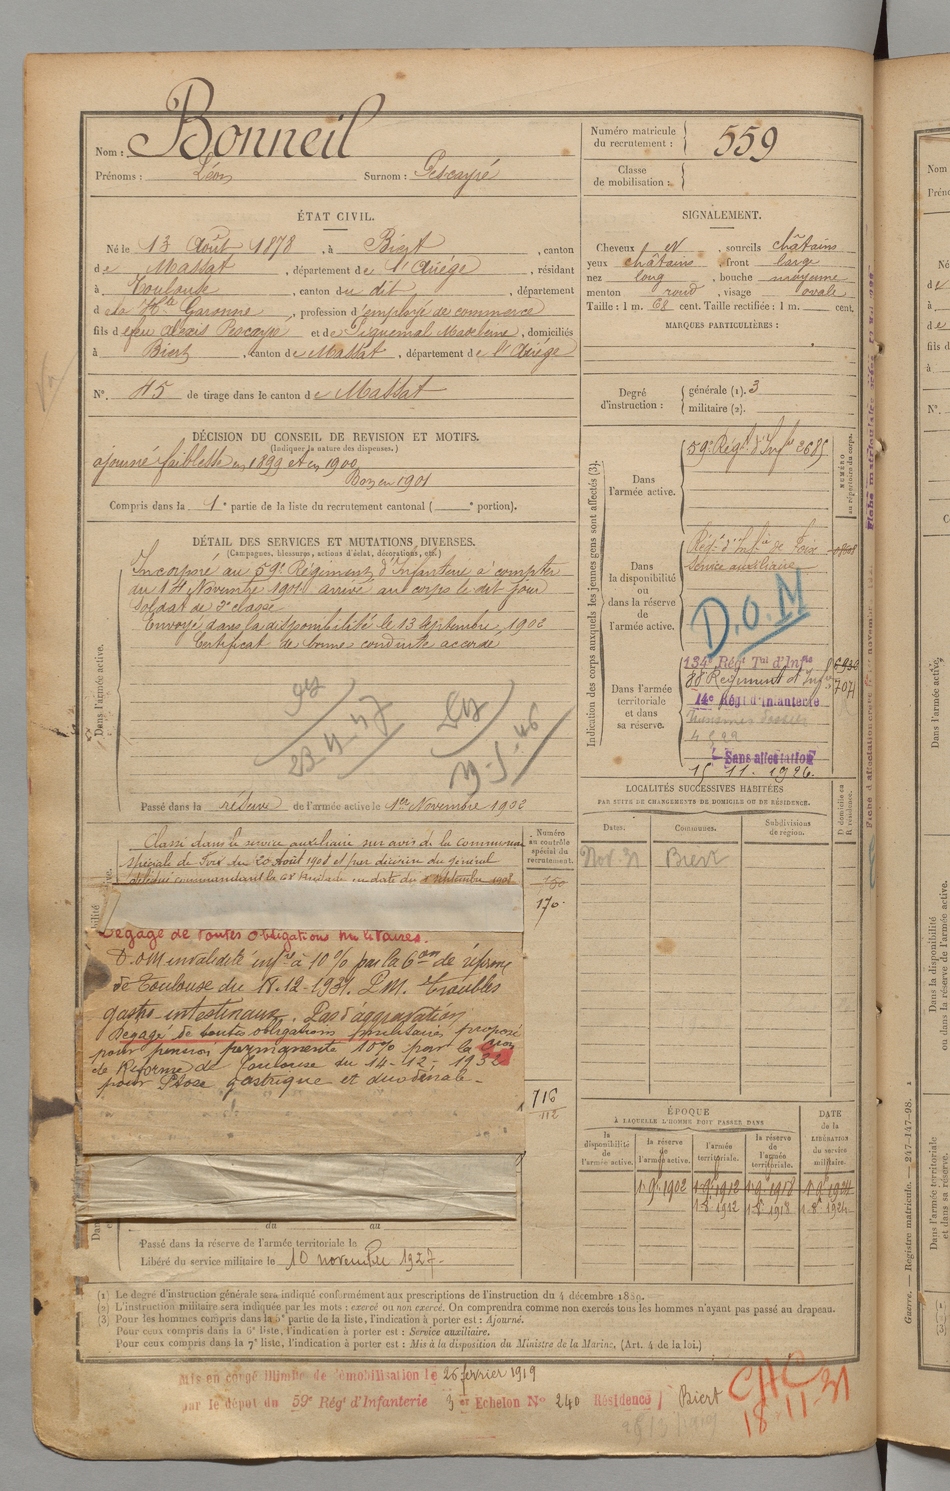 Nom : Bonneil
Prénoms : Léon Surnom : Pescayré
ÉTAT CIVIL.
Né le 13 Août 1878, à Biert, canton
de Massat, département de l'Ariège, résidant
à Toulouse, canton du dit, département
de la Hte Garonne, profession d'employé de commerce
fils de feu Alexis Pescayre et de Piquemal Madeleine, domiciliés
à Biert, canton de Massat, département de l'Ariège
N°. 45 de tirage dans le canton de Massat
DÉCISION DU CONSEIL DE REVISION ET MOTIFS.
(Indiquer la nature des dispenses.)
ajourné faiblesse en 1899 et en 1900
Bon en 1901
Compris dans la 1e partie de la liste du recrutement cantonal ( e portion).
DÉTAIL DES SERVICES ET MUTATIONS DIVERSES.
(Campagnes, blessures, actions d'éclat, décorations, etc.)
Dans l'armée active.
Incorporé au 59e Régiment d'Infanterie à compter
du 14 Novembre 1901 arrivé au corps le dit jour
Soldat de 2e classe
Envoyé dans la disponibilité le 13 septembre 1902
Certificat de bonne conduite accordé
23-4-47
Passé dans la réserve de l'armée active le 1er Novembre 1902
Numéro
au contrôle
spécial du
recrutement.
Classé dans le service auxiliaire sur avis de la commission
spéciale de Foix du 20 Août 1908 et par décision du général
170
Dégagé de toutes obligations militaires.
D.O.M invalidité infre à 10% par la 6e con de réforme
de Toulouse du 18-12-1931. P.M. troubles
gastro-intestinaux. Pas d'aggravation
Dégagé de toutes obligations militaires proposé
pour pension permanente 10% par la Con
de Réforme de Toulouse du 14-12-1932
pour Ptose gastrique et duodénale
716
112
du au
Passé dans la réserve de l'armée territoriale le
Libéré du service militaire le 10 novembre 1927.
Numéro matricule
du recrutement : 559
Classe
de mobilisation :
SIGNALEMENT.
Cheveux et, sourcils châtains
yeux châtains, front large
nez long, bouche moyenne
menton rond, visage ovale
Taille : 1 m. 68 cent. Taille rectifiée : 1 m. cent.
MARQUES PARTICULIÈRES :
Degré
d'instruction :
générale (1). 3
militaire (2).
Indication des corps auxquels les jeunes gens sont affectés (3).
NUMÉRO
au répertoire du corps.
Dans
l'armée active.
59e Régt d'Infie 2685
Dans
la disponibilité
ou
dans la réserve
de
l'armée active.
Régt d'Infie de Foix
Service auxiliaire
D.O.M
Dans l'armée
territoriale
et dans
sa réserve.
134e Régt Tal d'Infie
88 Regiment d'Infie
14e Régt d'infanterie
Sans affectation
15 11. 1926.
LOCALITÉS SUCCESSIVES HABITÉES
PAR SUITE DE CHANGEMENTS DE DOMICILE OU DE RÉSIDENCE.
D domicile ou
R résidence.
Dates. Communes. Subdivisions
de région.
Nov. 31 Biert
ÉPOQUE
À LAQUELLE L'HOMME DOIT PASSER DANS
DATE
de la
LIBÉRATION
du service
militaire.
la
disponibilité
de
l'armée active.
la réserve
de
l'armée active.
l'armée
territoriale.
la réserve
de
l'armée
territoriale.
1-9e 1902 1-9e 1912 1-9e 1918 1-9e 1924
1-8e 1912 1-8e 1918 1-8e 1924
(1) Le degré d'instruction générale sera indiqué conformément aux prescriptions de l'instruction du 4 décembre 1889.
(2) L'instruction militaire sera indiquée par les mots : exercé ou non exercé. On comprendra comme non exercés tous les hommes n'ayant pas passé au drapeau.
(3) Pour les hommes compris dans la 5e partie de la liste, l'indication à porter est : Ajourné.
Pour ceux compris dans la 6e liste, l'indication à porter est : Service auxiliaire.
Pour ceux compris dans la 7e liste, l'indication à porter est : Mis à la disposition du Ministre de la Marine. (Art. 4 de la loi.)
Mis en congé illimité de démobilisation le 26 février 1919
par le dépôt du 59e Régt d'Infanterie 3er Echelon No 240 Résidence Biert
CAC
18-11-31
Guerre. — Registre matricule. — 247-147-98.